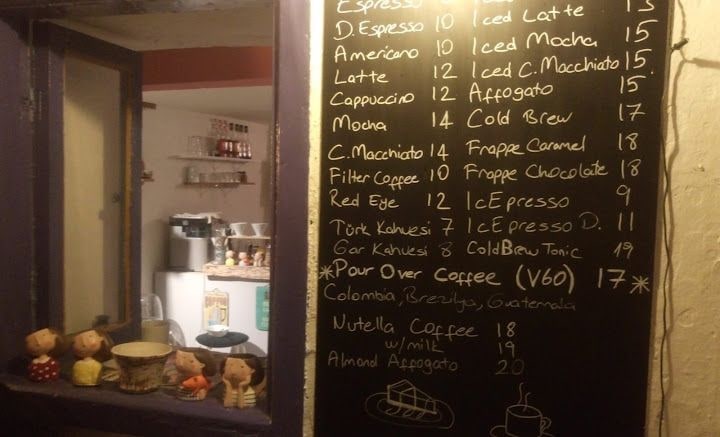 Espresso
D. Espresso 10 Iced Latte 15
Americano 10 Iced Mocha 15
Latte 12 Iced C. Macchiato 15
Cappuccino 12 Affogato 15
Mocha 14 Cold Brew 17
C. Macchiato 14 Frappe Caramel 18
Filter Coffee 10 Frappe Chocolate 18
Red Eye 12 IcEpresso 9
Türk Kahvesi 7 IcEpresso D. 11
Gar Kahvesi 8 Cold Brew Tonic 19
*Pour Over Coffee (V60) 17*
Colombia, Brezilya, Guatemala
Nutella Coffee 18
w/milk 19
Almond Affogato 20